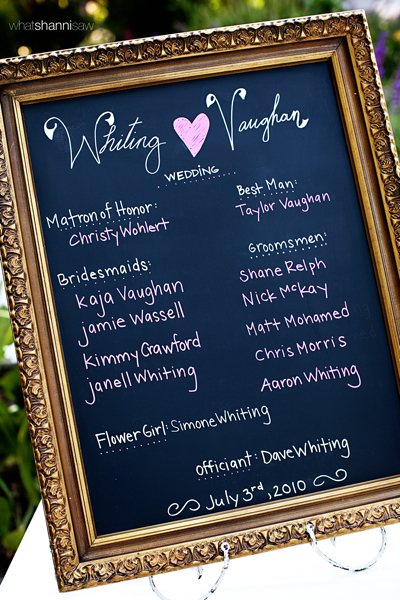 whatshannisaw
Whiting Vaughan
WEDDING
Matron of Honor:
Christy Wohlert
Best Man:
Taylor Vaughan
Bridesmaids:
Kaja Vaughan
Jamie Wassell
Kimmy Crawford
Janell Whiting
Groomsmen:
Shane Relph
Nick McKay
Matt Mohamed
Chris Morris
Aaron Whiting
Flower Girl: Simone Whiting
Officiant: Dave Whiting
July 3rd, 2010